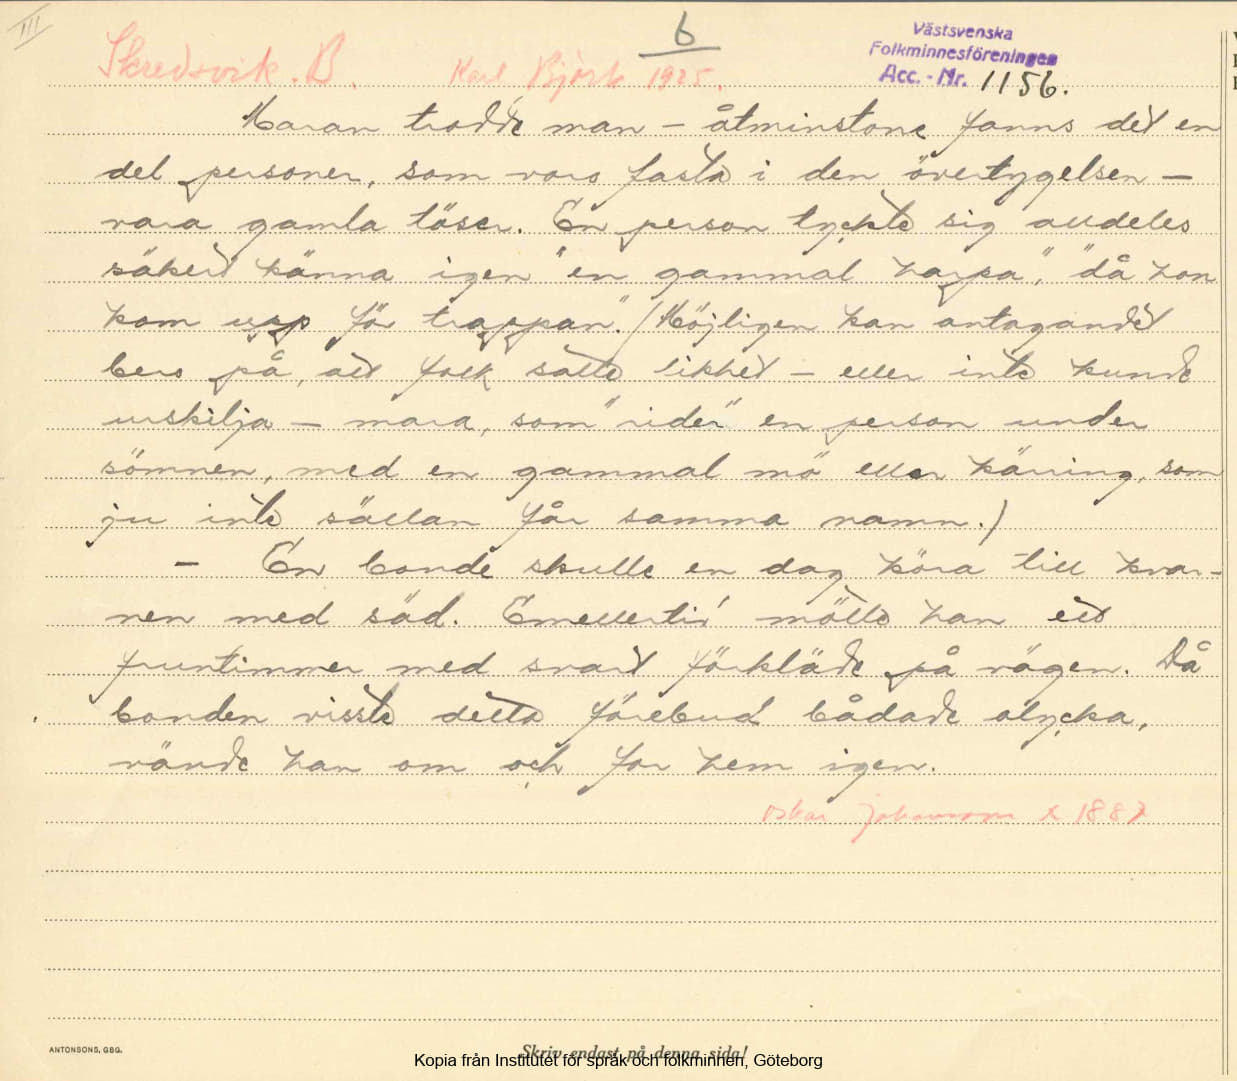 III
6
Västsvenska
Folkminnesföreningen
Acc. - Nr. 1156.
Skredsvik. B. Karl Björk 1925.
Maran trodde man – åtminstone fanns det en
del personer, som voro fasta i den övertygelsen –
vara gamla töser. En person tyckte sig alldeles
säkert känna igen "en gammal harpa", "då hon
kom upp för trappan". (Möjligen kan antagandet
bero på, att folk satte likhet – eller inte kunde
urskilja – mara, som "rider" en person under
sömnen, med en gammal mö eller käring, som
ju inte sällan får samma namn.)
– En bonde skulle en dag köra till kvar-
nen med säd. Emellertid mötte han ett
fruntimmer med svart förkläde på vägen. Då
bonden visste detta förebud bådade olycka,
vände han om och for hem igen.
Oskar Johansson
ANTONSONS, GBG.
Skriv endast på denna sida!
Kopia från Institutet för språk och folkminnen, Göteborg